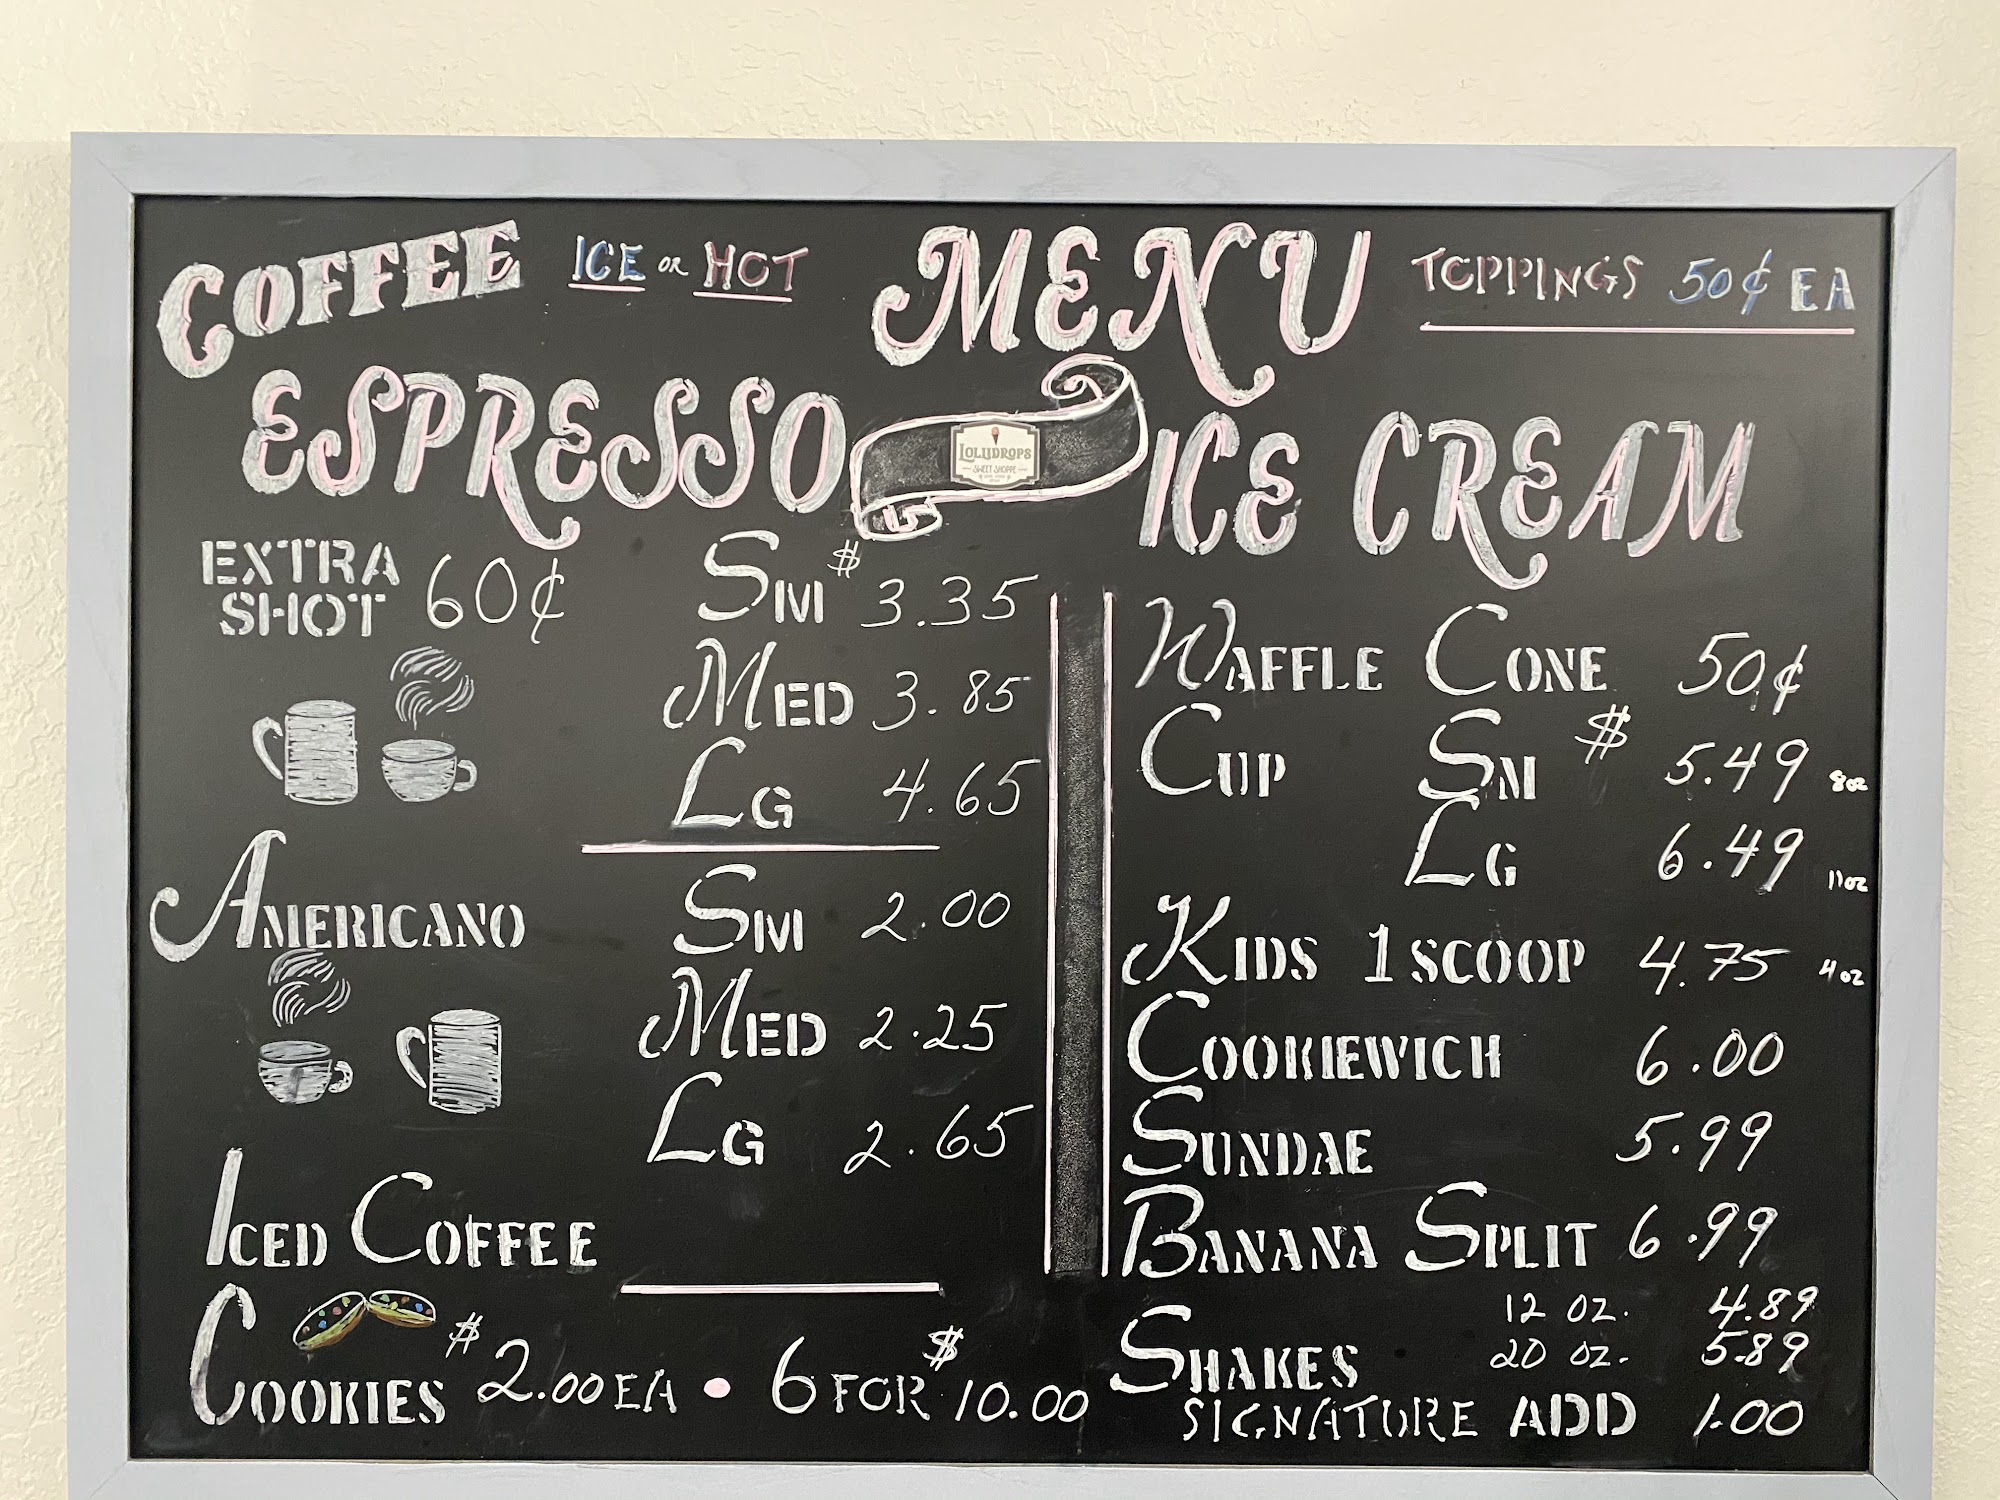 COFFEE ICE OR HOT MENU TOPPINGS 50¢ EA
ESPRESSO
LOLLIDROPS
SWEET SHOPPE
ICE CREAM
EXTRA SHOT 60¢
SM $3.35
MED 3.85
LG 4.65
AMERICANO
SM 2.00
MED 2.25
LG 2.65
ICED COFFEE
COOKIES $2.00 EA • 6 FOR $10.00
WAFFLE CONE 50¢
CUP SM $5.49 8oz
LG 6.49 11oz
KIDS 1 SCOOP 4.75 4oz
COOKIEWICH 6.00
SUNDAE 5.99
BANANA SPLIT 6.99
SHAKES 12 OZ. 4.89
20 OZ. 5.89
SIGNATURE ADD 1.00